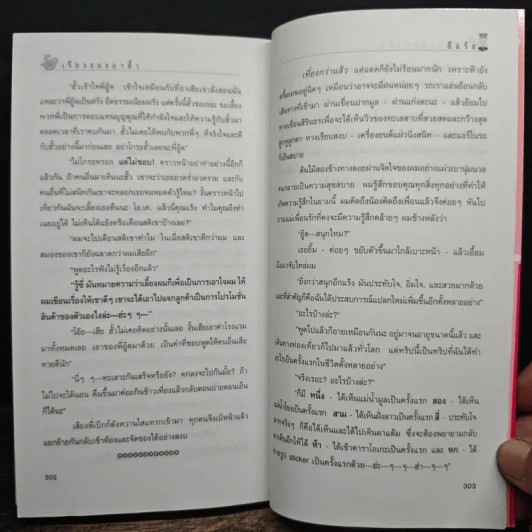 เรื่องของอาตี๋
"ฮั้วเข้าใจพี่อู๊ด เข้าใจเหมือนกับที่อาเฮียเขาสั่งสอนนั่น
แหละว่าพี่อู๊ดเป็นฝรั่ง อีดธรรมเนียมฝรั่ง แต่ครั้งนี้ฮั้วขอเถอะ ขอเลี้ยง
พวกพี่เป็นการตอบแทนบุญคุณที่ให้กำลังใจและให้ความรู้กับฮั้วมา
ตลอดเวลาที่เราคบกันมา ฮั้วไม่เคยได้พบกับพวกพี่ๆ ที่จริงใจและดี
กับฮั้วอย่างนี้มาก่อนเลย อย่าโกรธฮั้วเลยนะพี่อู๊ด"
"ไม่โกรธหรอก แต่ไม่ชอบ! คราวหน้าอย่าทำอย่างนี้อีกก็
แล้วกัน ถ้าคนอื่นมาเห็นนะฮั้ว เขาจะว่าเราเอออวดร่ำอวดรวย และกับ
คนอื่นที่ไม่สนิทกันเขาจะหลอกเธอจนหมดตัวรู้ไหม? งั้นคราวหน้าไป
เที่ยวกันฉันจะเลี้ยงเธอคืนนะ โอ.เค. แล้วนี่คุณแร้ง ทำไมคุณถึงทำ
เฉยอยู่ได้ ไม่เห็นโต้แย้งหรือเตือนสติเขาบ้างเลย?"
"ผมจะไปเตือนสติเขาทำไม ในเมื่อสติเขาดีกว่าผม และ
สมองของเขาก็ยังฉลาดกว่าผมเสียอีก"
"พูดอะไรฟังไม่รู้เรื่องอีกแล้ว"
"รู้ซี่ มันหมายความว่าเขาเลี้ยงผมก็เพื่อเป็นการเอาใจผม ให้
ผมเขียนเรื่องให้เขาดีๆ เขาจะได้เอาไปแจกลูกค้าเป็นการโปรโมชั่น
สินค้าของตัวเองไงล่ะ---ฮ่ะๆ ๆ---"
"โอ๊ย---เฮีย ฮั้วไม่เคยคิดอย่างนั้นเลย งั้นเฮียเอาค่าโรงแรม
มาทั้งหมดเลย เอาของพี่อู๊ดมาด้วย เป็นค่าที่ชอบพูดให้คนอื่นเสีย
หายดีนัก"
"นี่ๆ ๆ---ทะเลาะกันเสร็จหรือยัง? ตกลงจะไปกันมั้ย? ถ้า
ไม่ไปจะได้นอน ตื่นขึ้นมาค่อยกินข้าวเที่ยงแล้วกลับตอนบ่ายตอนเย็น
ก็ได้นะ"
เสียงพี่เบิกก็ดังหวานโสแทรกเข้ามา ทุกคนจึงเบิหน้าแล้ว
แยกย้ายกันกลับเข้าห้องและจัดของได้อย่างสงบ
๐๐๐๐๐๐๐๐๐๐๐๐
302
อีแร้ง
เที่ยงกว่าแล้ว แต่แดดก็ยังไม่ร้อนมากนัก เพราะฟ้ายัง
ครึ้มเมฆอยู่นิดๆ เหมือนว่าอาจจะมีฝนหน่อยๆ รถเราแล่นย้อนกลับ
เส้นทางที่เข้ามา ผ่านเขื่อนปากมูล - ผ่านแก่งตะนะ - แล้วอ้อมไป
ทางเขื่อนสิรินธรเพื่อจะได้เห็นวิวของทะเลสาบที่สวยสดและกว้างสุด
ลูกหูลูกตา ทางเรียบสงบ - เครื่องยนต์แผ่วนิ่งสนิท - และแอร์ในรถ
ก็เย็นสบาย
ต้นไม้สองข้างทางลอยผ่านจิตใจของผมอย่างแผ่วเบานุ่มนวล
จนกลายเป็นความสุขสบาย ผมรู้สึกขอบคุณทุกสิ่งทุกอย่างที่ทำให้
เกิดความรู้สึกในยามนี้ ผมคิดถึงน้องคิดถึงเพื่อนแล้วจึงค่อยๆ หันไป
ถามแม่เพื่อนรักที่คงจะมีความรู้สึกคล้ายๆ ผมข้างหลังว่า
"อู๊ด---สนุกไหม?"
เธอยิ้ม - ค่อยๆ ขยับตัวขึ้นมาใกล้เบาะหน้า - แล้วเอื้อม
มือมาจับไหล่ผม
"ยิ่งกว่าสนุกอีกแร้ง มันประทับใจ, อิ่มใจ, และสวยมากด้วย
และที่สำคัญก็คือฉันได้ประสบการณ์แปลกใหม่เพิ่มขึ้นอีกตั้งหลายอย่าง"
"อะไรบ้างล่ะ?"
"พูดไปแล้วก็อายเหมือนกันนะ อยู่มาจนอายุขนาดนี้แล้ว และ
เส้นทางท่องเที่ยวก็ไปมาแล้วทั่วโลก แต่ทริปนี้เป็นทริปที่ฉันได้ทำ
อะไรเป็นครั้งแรกในชีวิตตั้งหลายอย่าง"
"จริงเรอะ? อะไรบ้างล่ะ?"
"ก็มี หนึ่ง - ได้เห็นแม่น้ำมูลเป็นครั้งแรก สอง - ได้เห็น
แม่น้ำโขงเป็นครั้งแรก สาม - ได้เห็นฝั่งลาวเป็นครั้งแรก สี่ - ประทับใจ
มากจริงๆ ก็คือได้เห็นและได้ไปเดินผาแต้ม ซึ่งจะต้องพยายามกลับ
มาเดินอีกให้ได้ ห้า - ได้เข้าคาราโอเกะเป็นครั้งแรก และ หก - ได้
ถ่ายรูป sticker เป็นครั้งแรกด้วย---ฮ่ะ---ๆ---ๆ---ฮ่า---ๆ---ๆ"
303